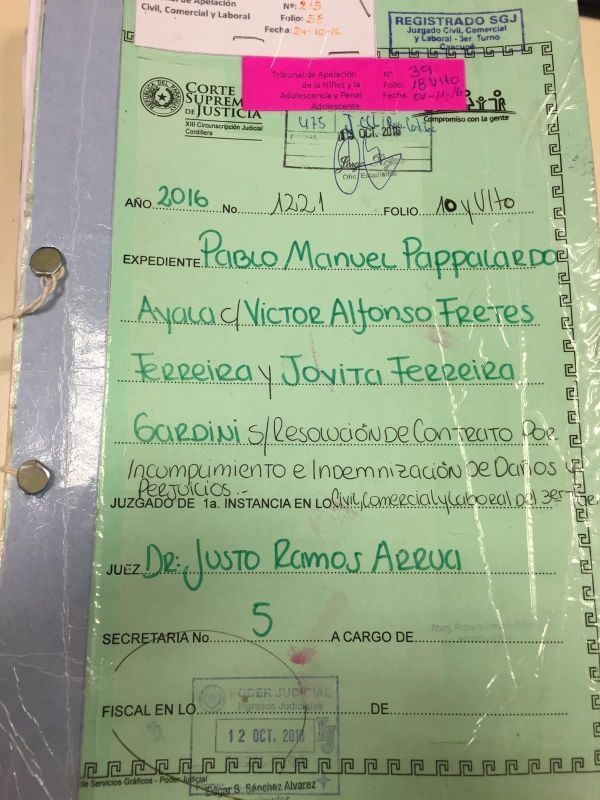 Tribunal de Apelación
Civil, Comercial y Laboral
Nº: 213
Folio: 58
Fecha: 24-10-16
REGISTRADO SGJ
Juzgado Civil, Comercial
y Laboral - 3er Turno
Caacupé
Tribunal de Apelación
de la Niñez y la
Adolescencia y Penal
Adolescente
Nº 39
Folio: 18 Vlto
Fecha: 01-11-16
CORTE
SUPREMA
DE JUSTICIA
XIII Circunscripción Judicial
Cordillera
Compromiso con la gente
475
OCT. 2016
Ofic. Estadística
AÑO. 2016 No 1221 FOLIO 10 y Vlto
EXPEDIENTE Pablo Manuel Pappalardo
Ayala c/ Victor Alfonso Fretes
Ferreira y Jovita Ferreira
Gardini s/ Resolución de Contrato por
Incumplimiento e Indemnización de Daños y
Perjuicios.-
JUZGADO DE 1a. INSTANCIA EN LO Civil, Comercial y Laboral del 3er
JUEZ Dr: Justo Ramos Arrua
SECRETARIA No 5 A CARGO DE
FISCAL EN LO DE
PODER JUDICIAL
Ingresos Judiciales
12 OCT. 2016
Edgar S. Sánchez Alvarez
de Servicios Gráficos - Poder Judicial